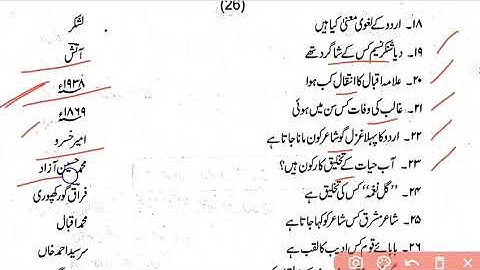 (26)
۱۸۔ اردو کے لغوی معنی کیا ہیں لشکر
۱۹۔ دیا شنکر نسیم کس کے شاگرد تھے آتش
۲۰۔ علامہ اقبال کا انتقال کب ہوا ۱۹۳۸ء
۲۱۔ غالب کی وفات کس سن میں ہوئی ۱۸۶۹ء
۲۲۔ اردو کا پہلا غزل گو شاعر کون مانا جاتا ہے امیر خسرو
۲۳۔ آب حیات کے تخلیق کار کون ہیں؟ محمد حسین آزاد
۲۴۔ "گل نغمہ" کس کی تخلیق ہے فراق گورکھپوری
۲۵۔ شاعر مشرق کس شاعر کو کہا جاتا ہے محمد اقبال
۲۶۔ بابائے قوم کس ادیب کا لقب ہے سرسید احمد خاں